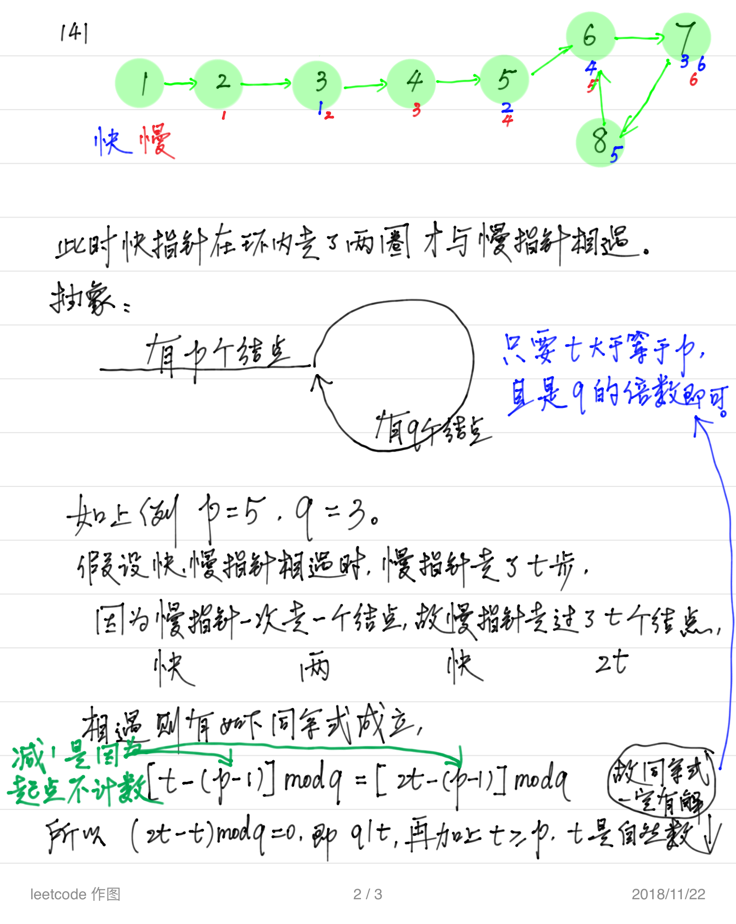 141
1 2 3 4 5 6 7 8
1 1 2 3 2 4 4 5 3 6 6 5
快 慢
此时快指针在环内走了两圈才与慢指针相遇。
抽象：
有p个结点
有q个结点
只要t大于等于p，
且是q的倍数即可。
如上例 p=5，q=3。
假设快、慢指针相遇时，慢指针走了t步，
因为慢指针一次走一个结点，故慢指针走过了t个结点，
快 两 快 2t
相遇则有如下同余式成立，
减1是因为
起点不计数
[t-(p-1)] mod q = [2t-(p-1)] mod q
故同余式
一定有解
所以 (2t-t) mod q=0，即 q|t，再加上 t≥p，t是自然数
leetcode 作图 2 / 3 2018/11/22